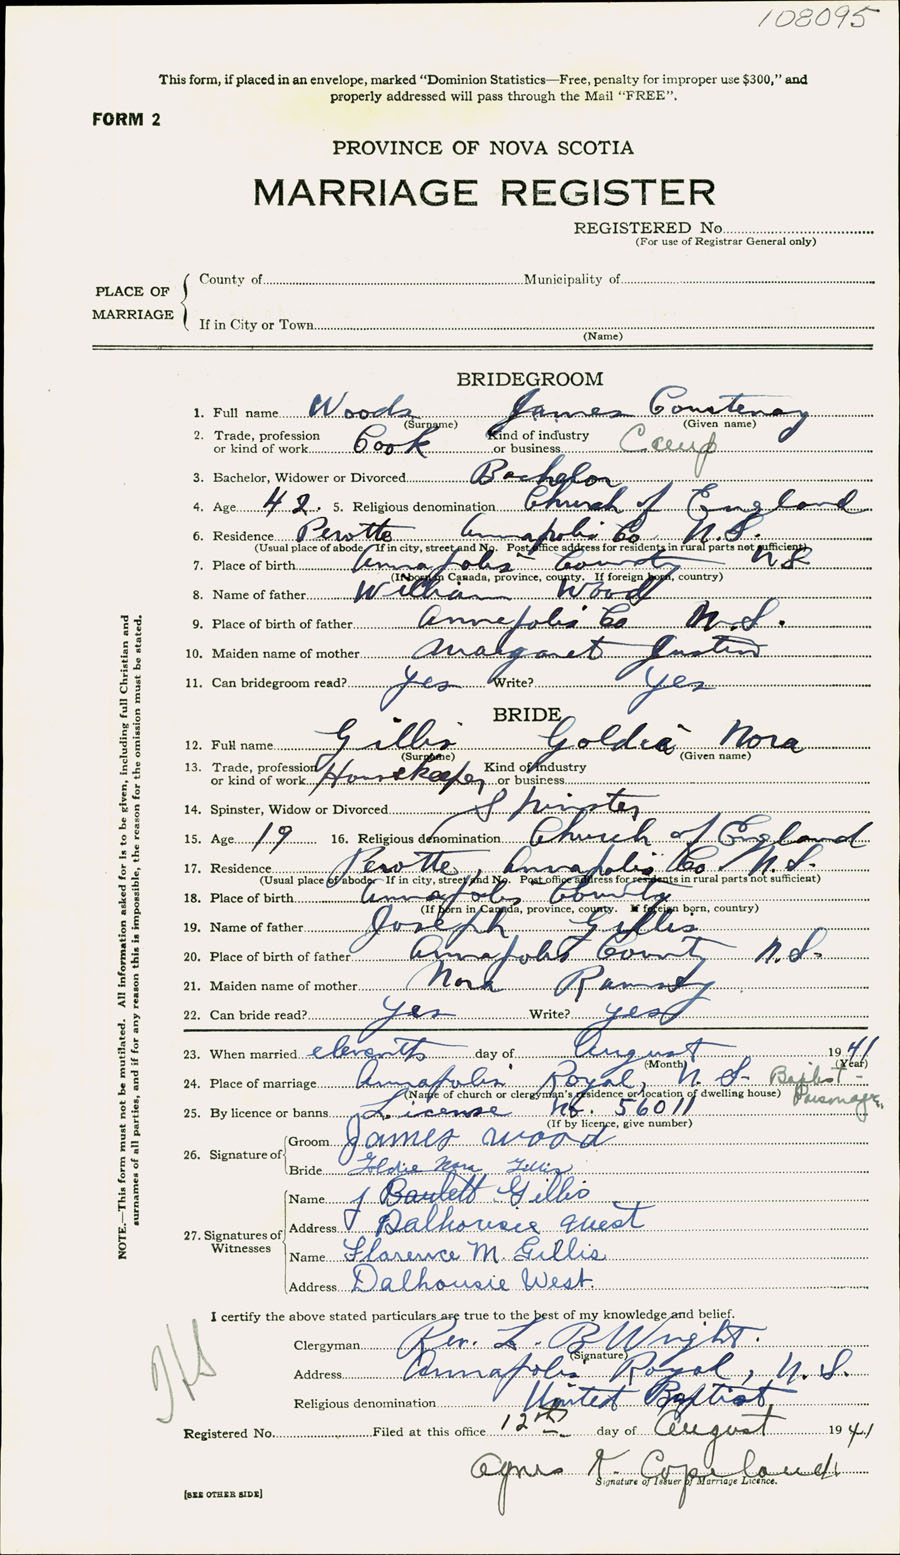 108095
This form, if placed in an envelope, marked "Dominion Statistics—Free, penalty for improper use $300," and
properly addressed will pass through the Mail "FREE".
FORM 2
PROVINCE OF NOVA SCOTIA
MARRIAGE REGISTER
REGISTERED No.
(For use of Registrar General only)
PLACE OF MARRIAGE
County of Municipality of
If in City or Town
(Name)
BRIDEGROOM
1. Full name Woods James Courtenay
(Surname) (Given name)
2. Trade, profession or kind of work Cook Kind of industry or business Camp
3. Bachelor, Widower or Divorced Bachelor
4. Age 42. 5. Religious denomination Church of England
6. Residence Perotte Annapolis Co N.S.
(Usual place of abode If in city, street and No. Post office address for residents in rural parts not sufficient)
7. Place of birth Annapolis County NS
(If born in Canada, province, county. If foreign born, country)
8. Name of father William Wood
9. Place of birth of father Annapolis Co N.S.
10. Maiden name of mother Margaret
11. Can bridegroom read? Yes Write? Yes
BRIDE
12. Full name Gillis Goldie Nora
(Surname) (Given name)
13. Trade, profession or kind of work Housekeeper Kind of industry or business
14. Spinster, Widow or Divorced Spinster
15. Age 19 16. Religious denomination Church of England
17. Residence Perotte Annapolis Co N.S.
(Usual place of abode If in city, street and No. Post office address for residents in rural parts not sufficient)
18. Place of birth Annapolis County
(If born in Canada, province, county. If foreign born, country)
19. Name of father Joseph Gillis
20. Place of birth of father Annapolis County N.S.
21. Maiden name of mother Nora Ramsey
22. Can bride read? Yes Write? yes
23. When married eleventh day of August 1941
(Month) (Year)
24. Place of marriage Annapolis Royal, N.S. Baptist Parsonage
(Name of church or clergyman's residence or location of dwelling house)
25. By licence or banns License No. 56011
(If by licence, give number)
26. Signature of Groom James Wood
Bride Goldie Nora Gillis
27. Signatures of Witnesses
Name J Barlett Gillis
Address Dalhousie West
Name Florence M. Gillis
Address Dalhousie West.
I certify the above stated particulars are true to the best of my knowledge and belief.
Clergyman Rev. L. B Wright.
(Signature)
Address Annapolis Royal, N.S.
Religious denomination United Baptist
Registered No. Filed at this office 12th day of August 1941
Agnes K. Copeland
Signature of Issuer of Marriage Licence.
[SEE OTHER SIDE]
NOTE.—This form must not be mutilated. All information asked for is to be given, including full Christian and
surnames of all parties, and if for any reason this is impossible, the reason for the omission must be stated.